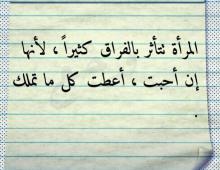 المرأة تتأثر بالفراق كثيراً ، لأنها
إن أحبت ، أعطت كل ما تملك
.